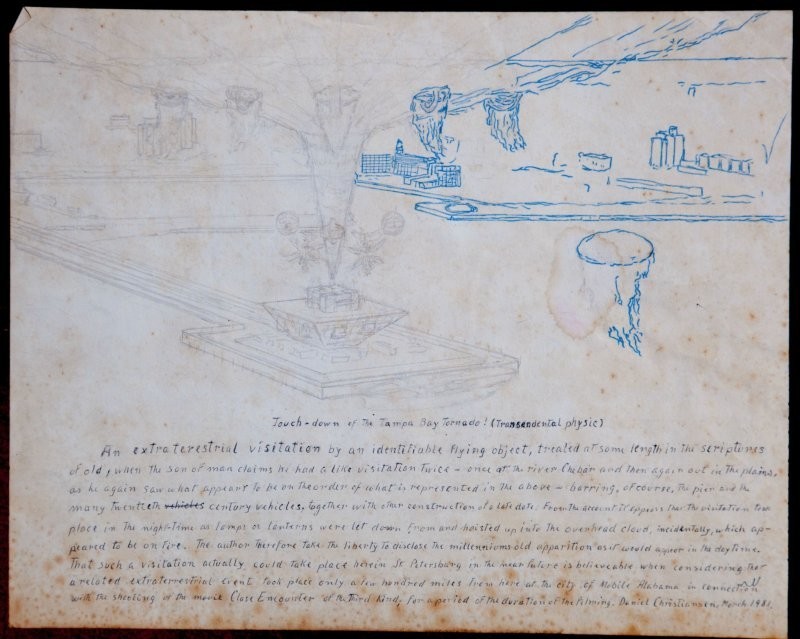 Touch-down of the Tampa Bay Tornado! (Transendental physic)
An extraterestrial visitation by an identifiable flying object, treated at some length in the scriptures
of old, when the son of man claims he had a like visitation twice – once at the river Chebar and then again out in the plains,
as he again saw what appears to be on the order of what is represented in the above – barring, of course, the pier and the
many twentieth vehicles century vehicles, together with other construction of a late date. From the account it appears that the visitation took
place in the night-time as lamps or lanterns were let down from and hoisted up into the overhead cloud, incidentally, which ap-
peared to be on fire. The author therefore take the liberty to disclose the millenniums old apparition as it would appear in the daytime.
That such a visitation actually could take place herein St Petersburg in the near future is believeable when considering that
a related extraterrestrial event took place only a few hundred miles from here at the city of Mobile Alabama in connection
with the shooting of the movie Close Encounder of the Third Kind, for a period of the duration of the filming. Daniel Christiansen, March 198